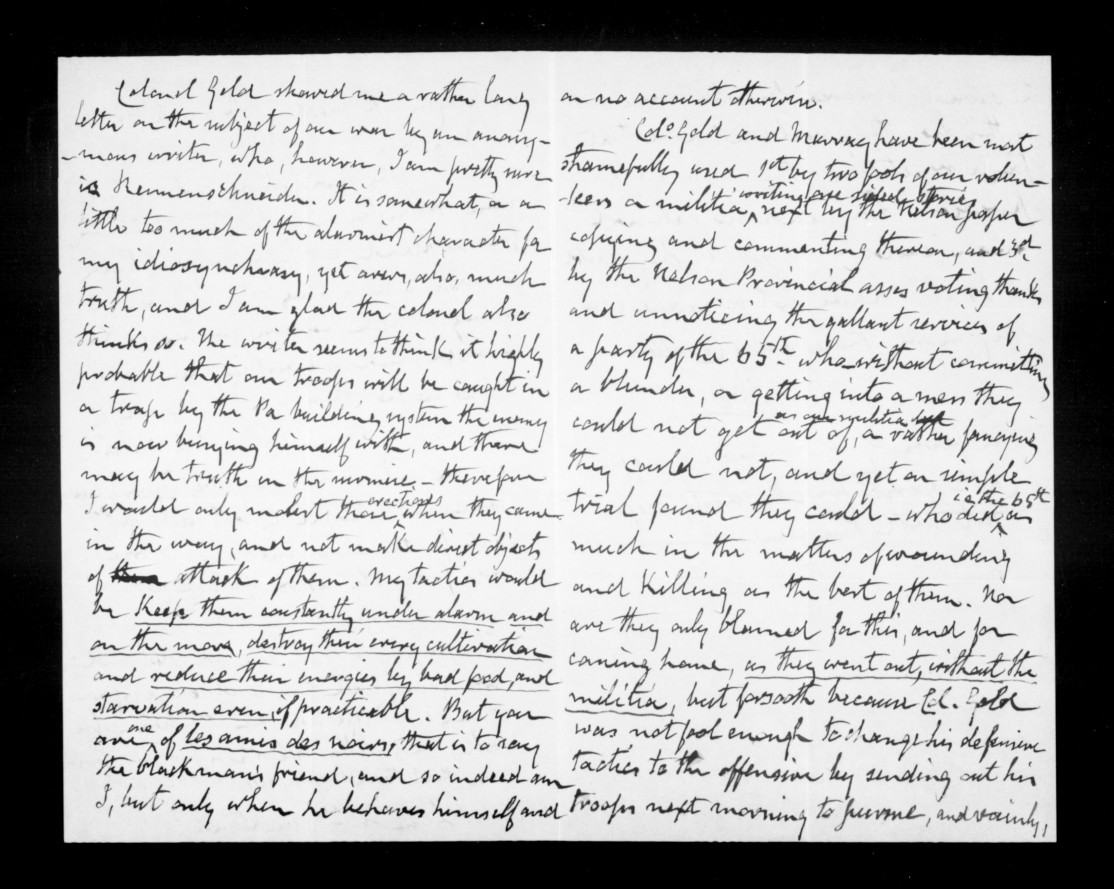 Colonel Gold showed me a rather long
letter on the subject of our war by an anony-
-mous writer, who, however, I am pretty sure
is Hemmenschneider. It is somewhat, or a
little too much of the alarmist character for
my idiosyncrasy, yet avers, also, much
truth, and I am glad the colonel also
thinks so. The writer seems to think it highly
probable that our troops will be caught in
a trap by the Pa building system the enemy
is now busying himself with, and there
may be truth in the surmise – therefore
I would only molest those erections when they come
in the way, and not make direct objects
of attack of them. My tactics would
be Keep them constantly under alarm and
on the move, destroy their every cultivation
and reduce their energies by bad food, and
starvation even, if practicable. But you
are one of les amis des noirs, that is to say
the blackman's friend, and so indeed am
I, but only when he behaves himself and
on no account otherwise.
Cols. Gold and Murray have been most
shamefully used 1st by two fools of our volun-
-teers or militia writing stories, next by the Nelson paper
copying and commenting thereon, and 3rd
by the Nelson Provincial asses voting thanks
and unnoticing the gallant services of
a party of the 65th who without committing
a blunder, or getting into a mess they
could not get out of, as our militia, or rather fancying
they could not, and yet on simple
trial found they could – who i.e. the 65th did as
much in the matters of wounding
and Killing as the best of them. Nor
are they only blamed for this, and for
coming home, as they went out, without the
militia, but forsooth because Col. Gold
was not fool enough to change his defensive
tactics to the offensive by sending out his
troops next morning to pursue, and vainly,